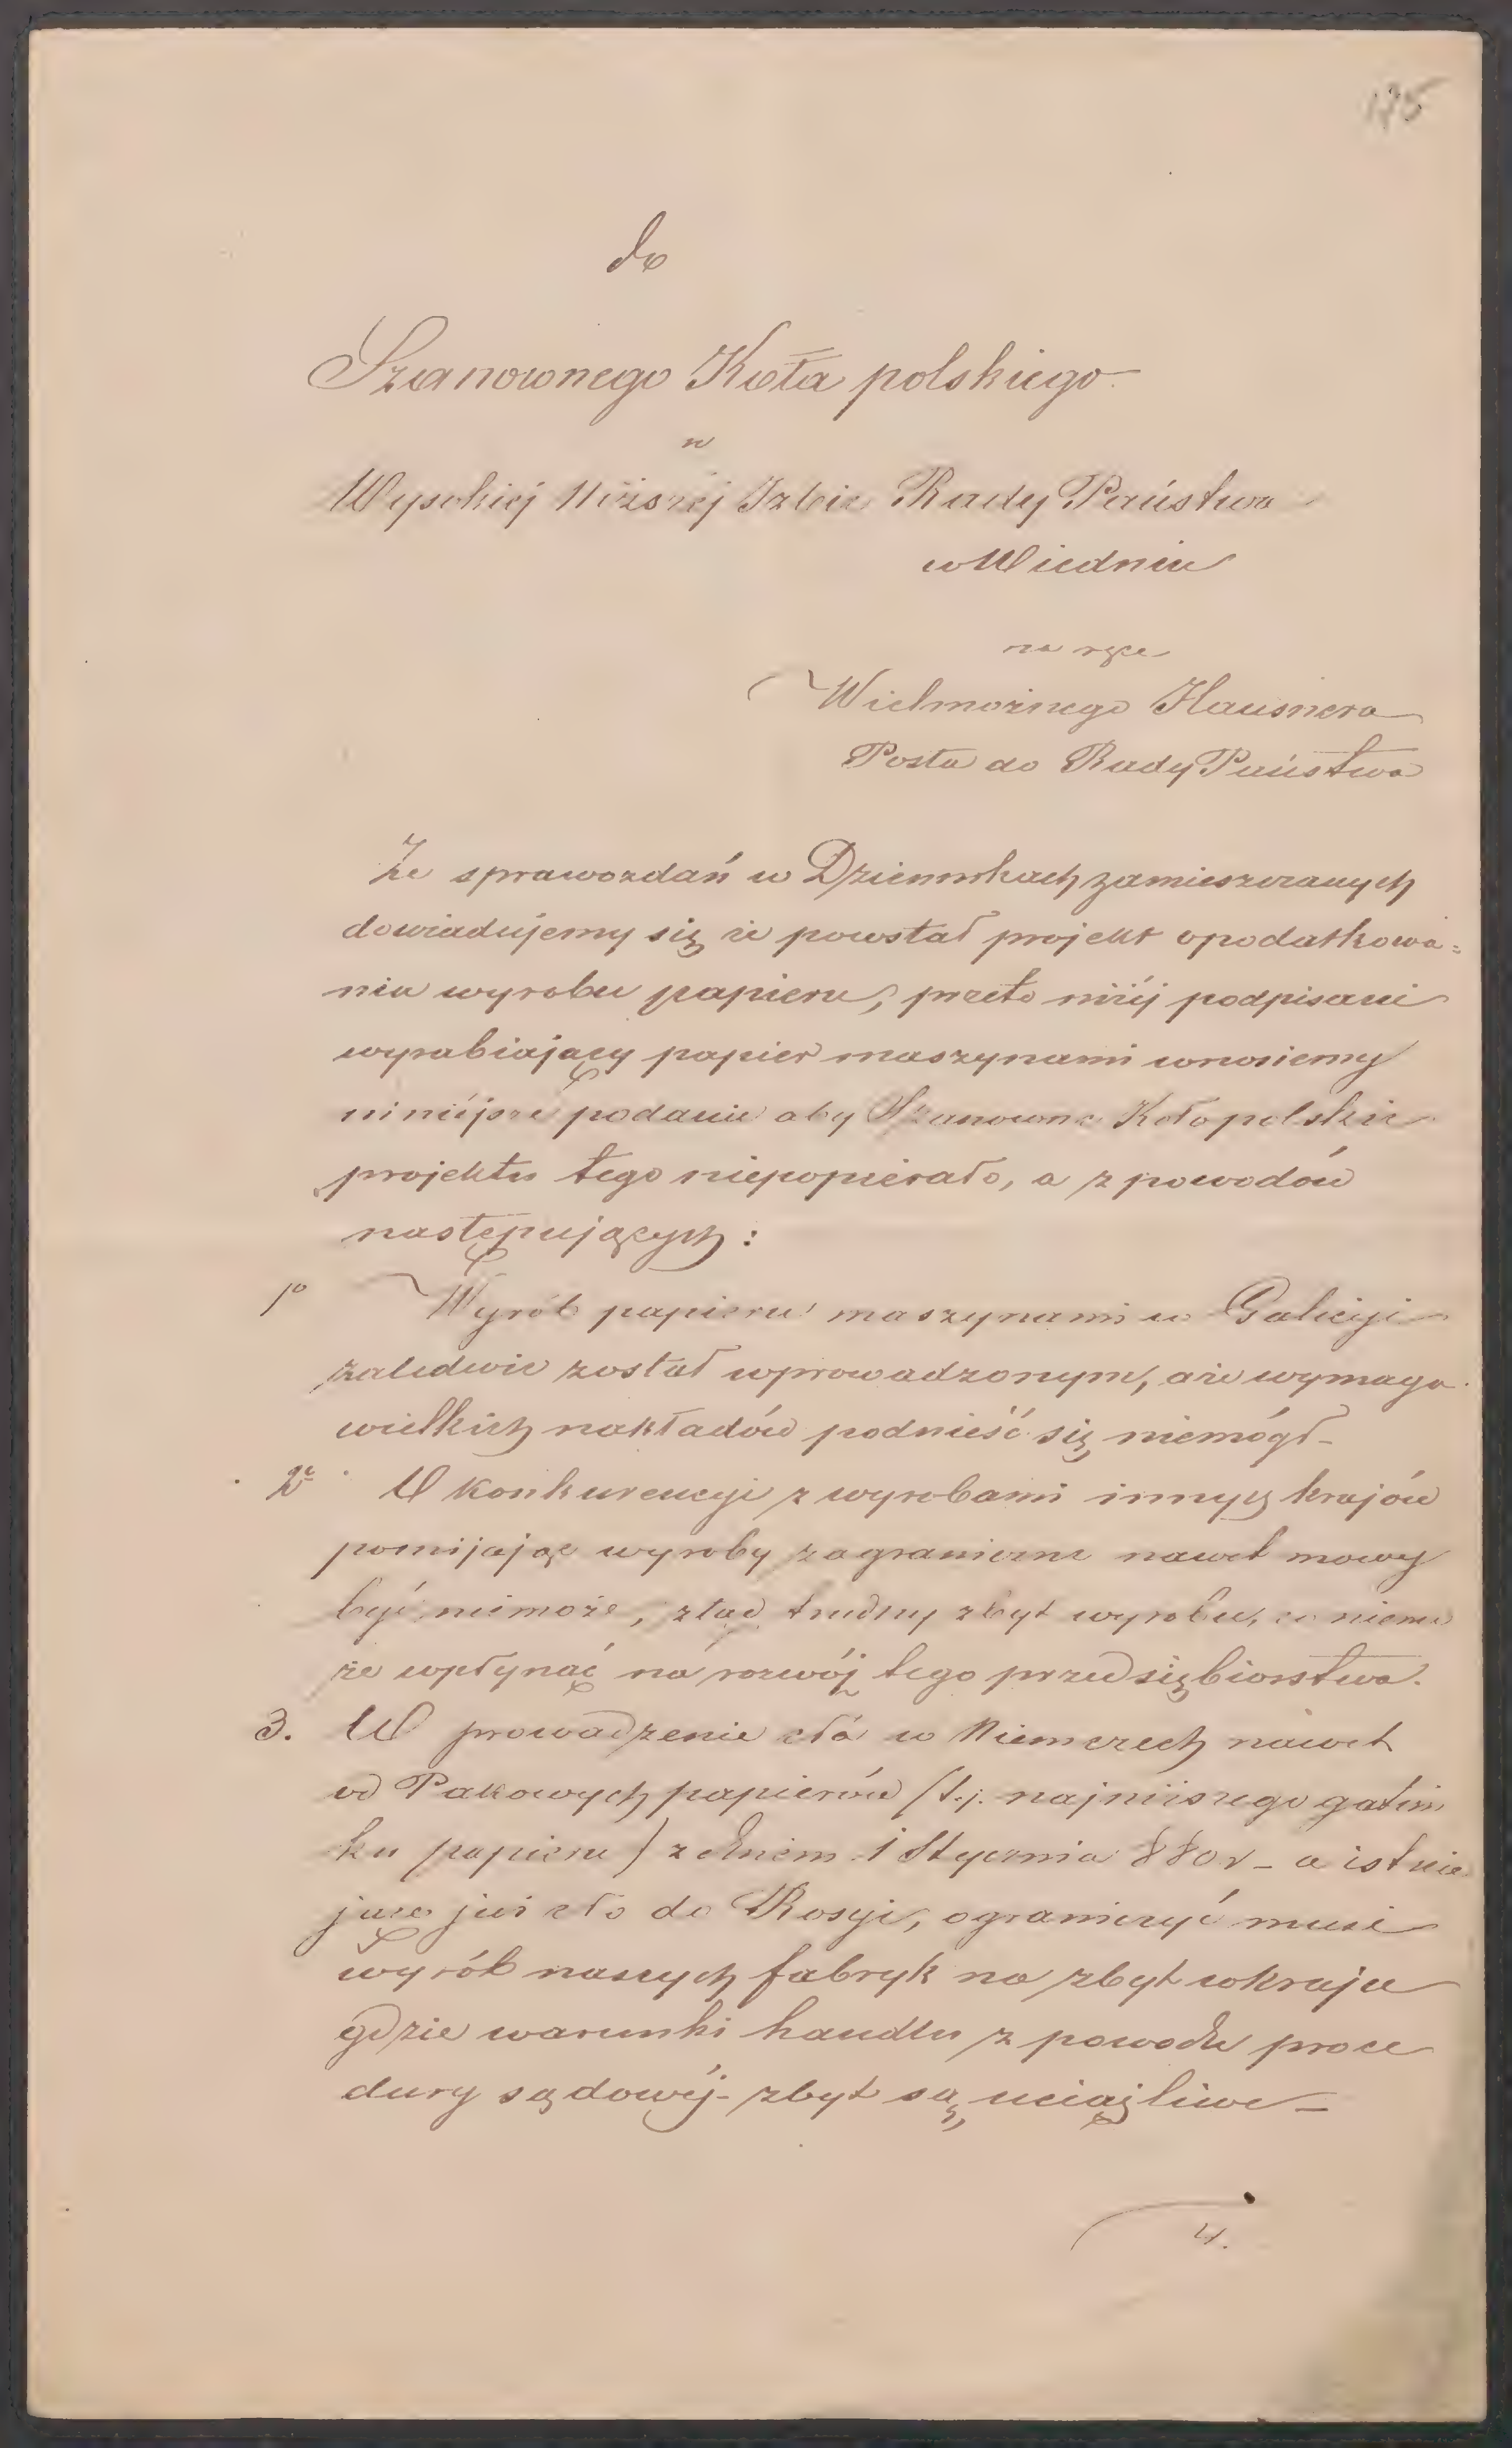 175
do
Szanownego Koła polskiego
w
Wysokiéj Niższéj Izbie Rady Państwa
w Wiedniu
na ręce
Wielmożnego Hausnera
Posła do Rady Państwa
Ze sprawozdań w Dziennikach zamieszczanych
dowiadujemy się że powstał projekt opodatkowa=
nia wyrobu papieru, przeto niżéj podpisani
wyrabiający papier maszynami wnosiemy
niniéjsze podanie aby Szanowne Koło polskie
projektu tego niepopierało, a z powodów
następujących:
1o Wyrób papieru maszynami w Galicyi
zaledwie został wprowadzonym, a że wymaga
wielkich nakładów podnieść się niemógł -
2e W konkurencyi z wyrobami innych krajów
pomijając wyroby zagraniczne nawet mowy
być niemoże, ztąd trudny zbyt wyrobu, co niemo
że wpłynąć na rozwój tego przedsiębiorstwa.
3. W prowadzenie cła w Niemczech nawet
od Pakowych papierów (t.j. najniższego gatun
ku papieru) z dniem 1 Stycznia 880 r - a istnie
jące już cło do Rosyi, ograniczyć musi
wyrób naszych fabryk na zbyt w kraju
gdzie warunki handlu z powodu proce
dury sądowéj - zbyt są uciążliwe -
4.